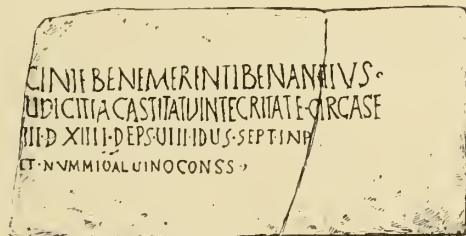 CINIE BENEMERENTI BENANTIVS ·
UDICITIA CASTITATU INTECRITATE · CIRCA SE
III · D XIIII · DEPS · UIIII · IDUS · SEPT · INP
ET · NVMMIO ALUINO CONSS ·